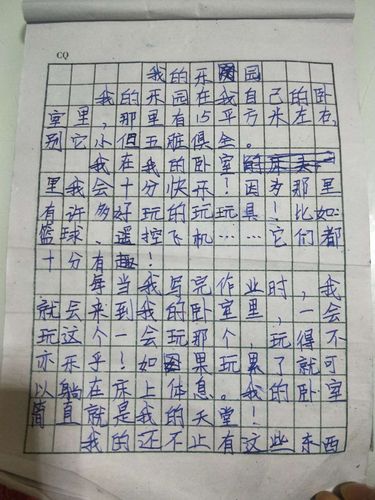 CQ
我的乐园
我的乐园在我自己的卧
室里，那里有15平方米左右，
别它小但五脏俱全。
我在我的卧室
里我会十分快乐！因为那里
有许多好玩的玩玩具！比如：
篮球、遥控飞机……它们都
十分有趣！
每当我写完作业时，我
就会来到我的卧室里，一会
玩这个一会玩那个，玩得不
亦乐乎！如果玩累了就可
以躺在床上休息。我的卧室
简直就是我的天堂！
我的还不止有这些东西